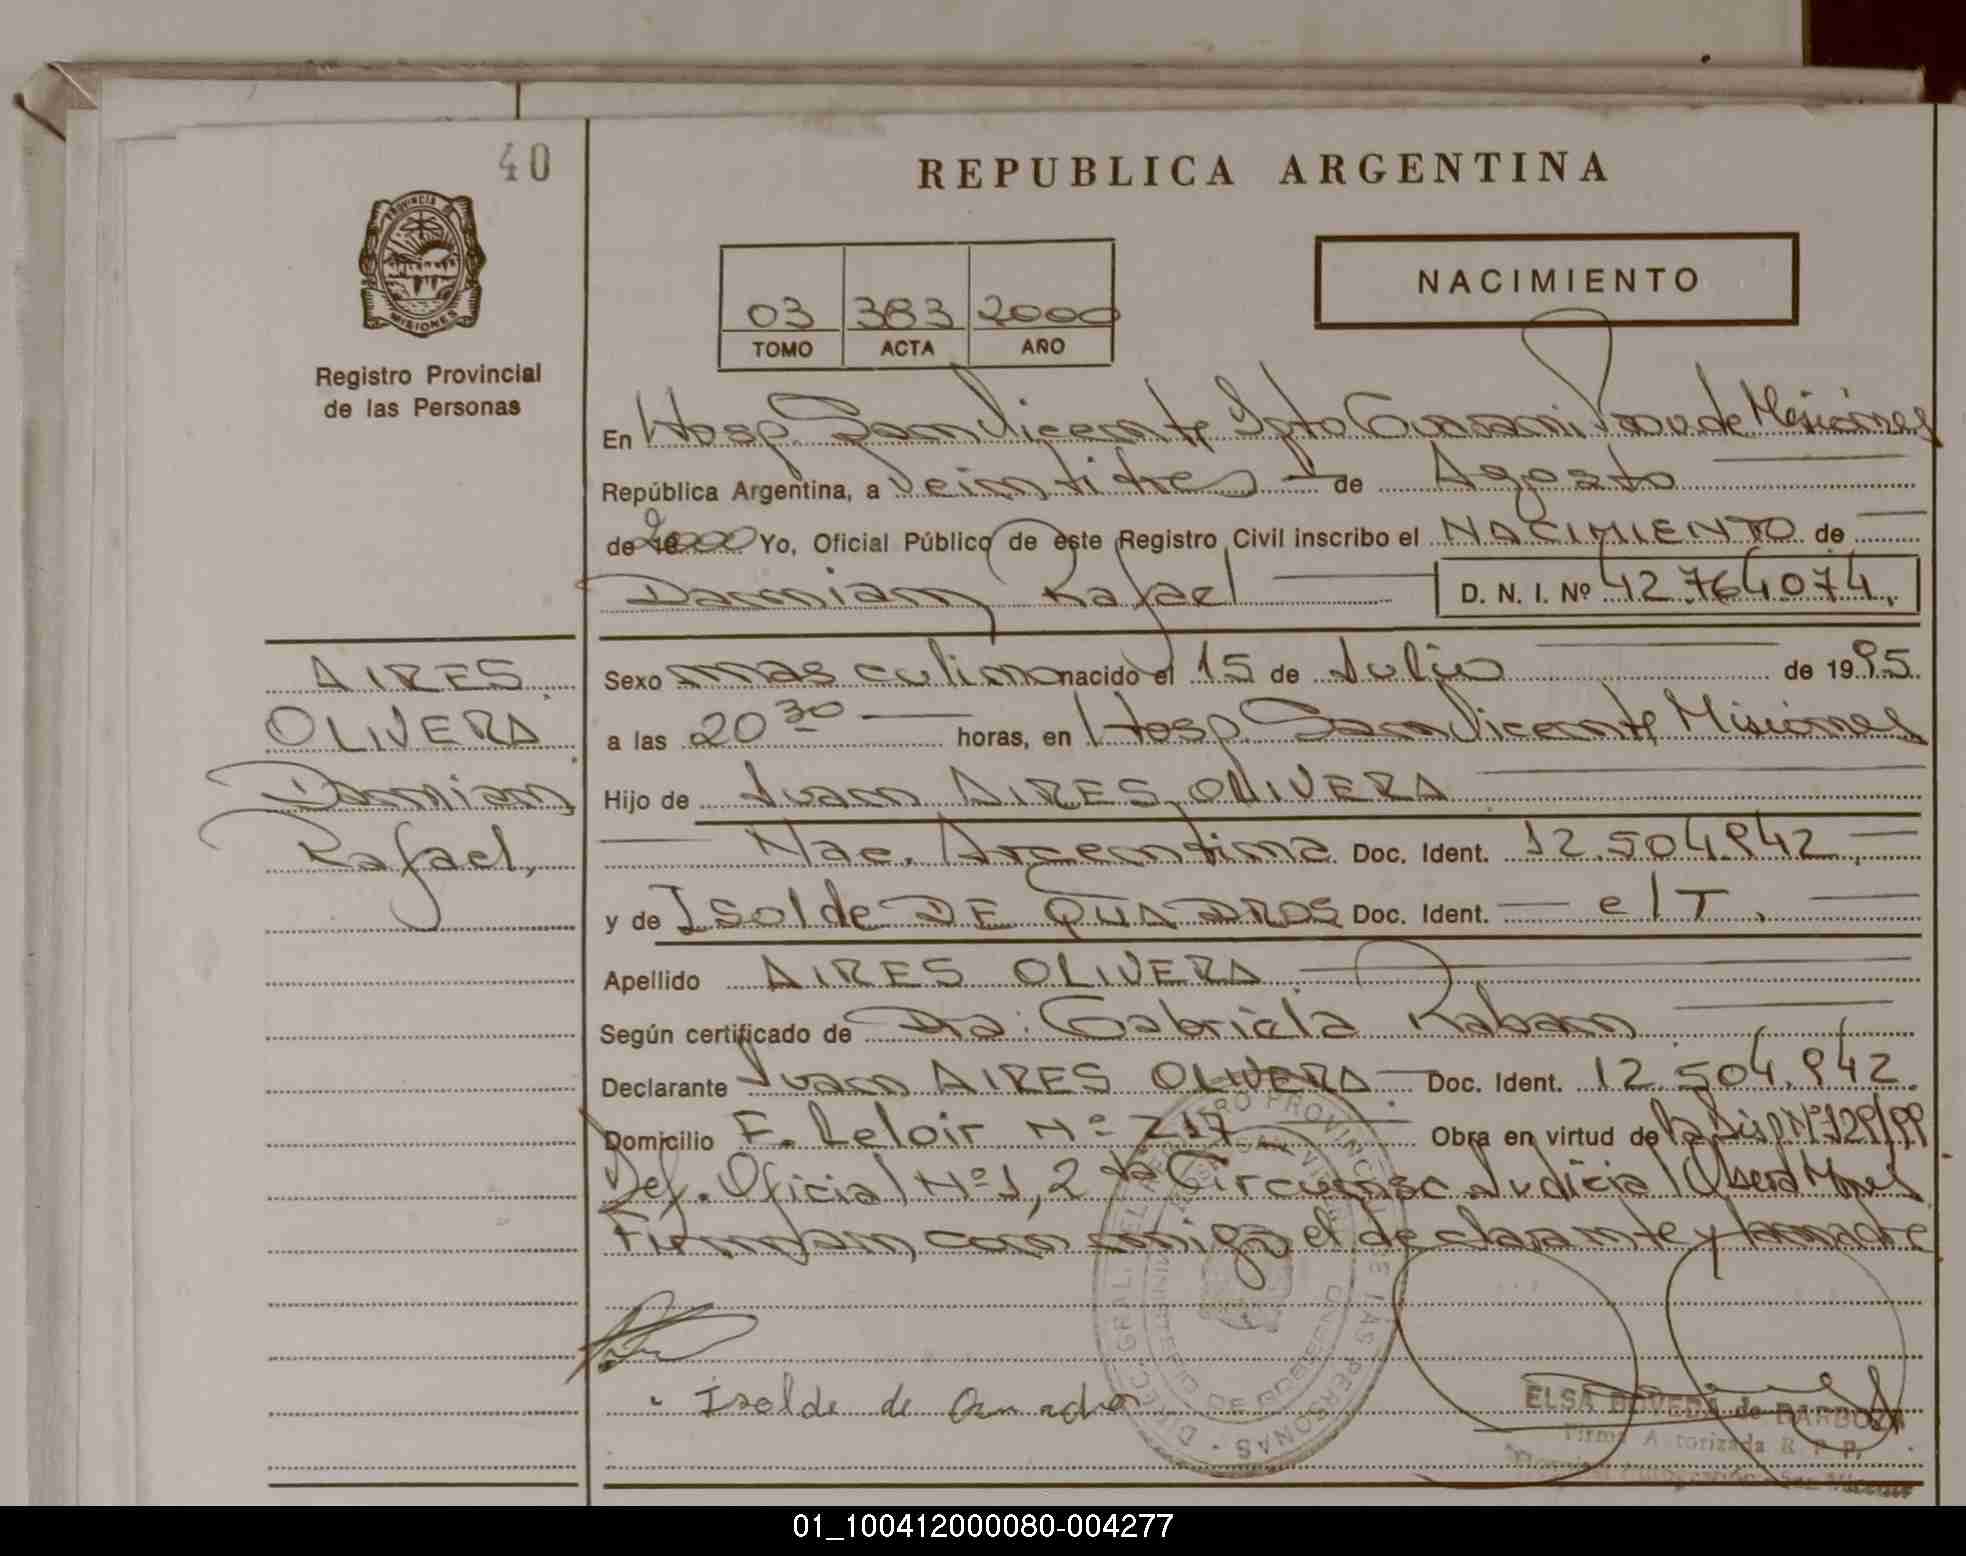 40
REPUBLICA ARGENTINA
PROVINCIA DE
MISIONES
Registro Provincial
de las Personas
03 383 2000
TOMO ACTA AÑO
NACIMIENTO
En Hosp. San Vicente Dpto Guarani Prov. de Misiones
República Argentina, a veintitres de Agosto
de 2000 Yo, Oficial Público de este Registro Civil inscribo el NACIMIENTO de
Damian Rafael D. N. I. Nº 42.764074.
AIRES
OLIVERA
Damian
Rafael,
Sexo masculino nacido el 15 de Julio de 1995.
a las 20 30 horas, en Hosp. San Vicente Misiones
Hijo de Juan AIRES OLIVERA
Nac. Argentina Doc. Ident. 12.504.942.
y de Isolde DE QUADROS Doc. Ident. e/T.
Apellido AIRES OLIVERA
Según certificado de Dra. Gabriela Raban
Declarante Juan AIRES OLIVERA Doc. Ident. 12.504.942.
Domicilio F. Leloir Nº 217 Obra en virtud de la Nº 729/99
Def. Oficial Nº 1, 2da Circunsc Judicial Obera Mnes
Firman con migo el declarante y la madre
Isolde de Quadros
ELSA BOVEDA de BARBOZA
Firma Autorizada R. P. P.
01_100412000080-004277